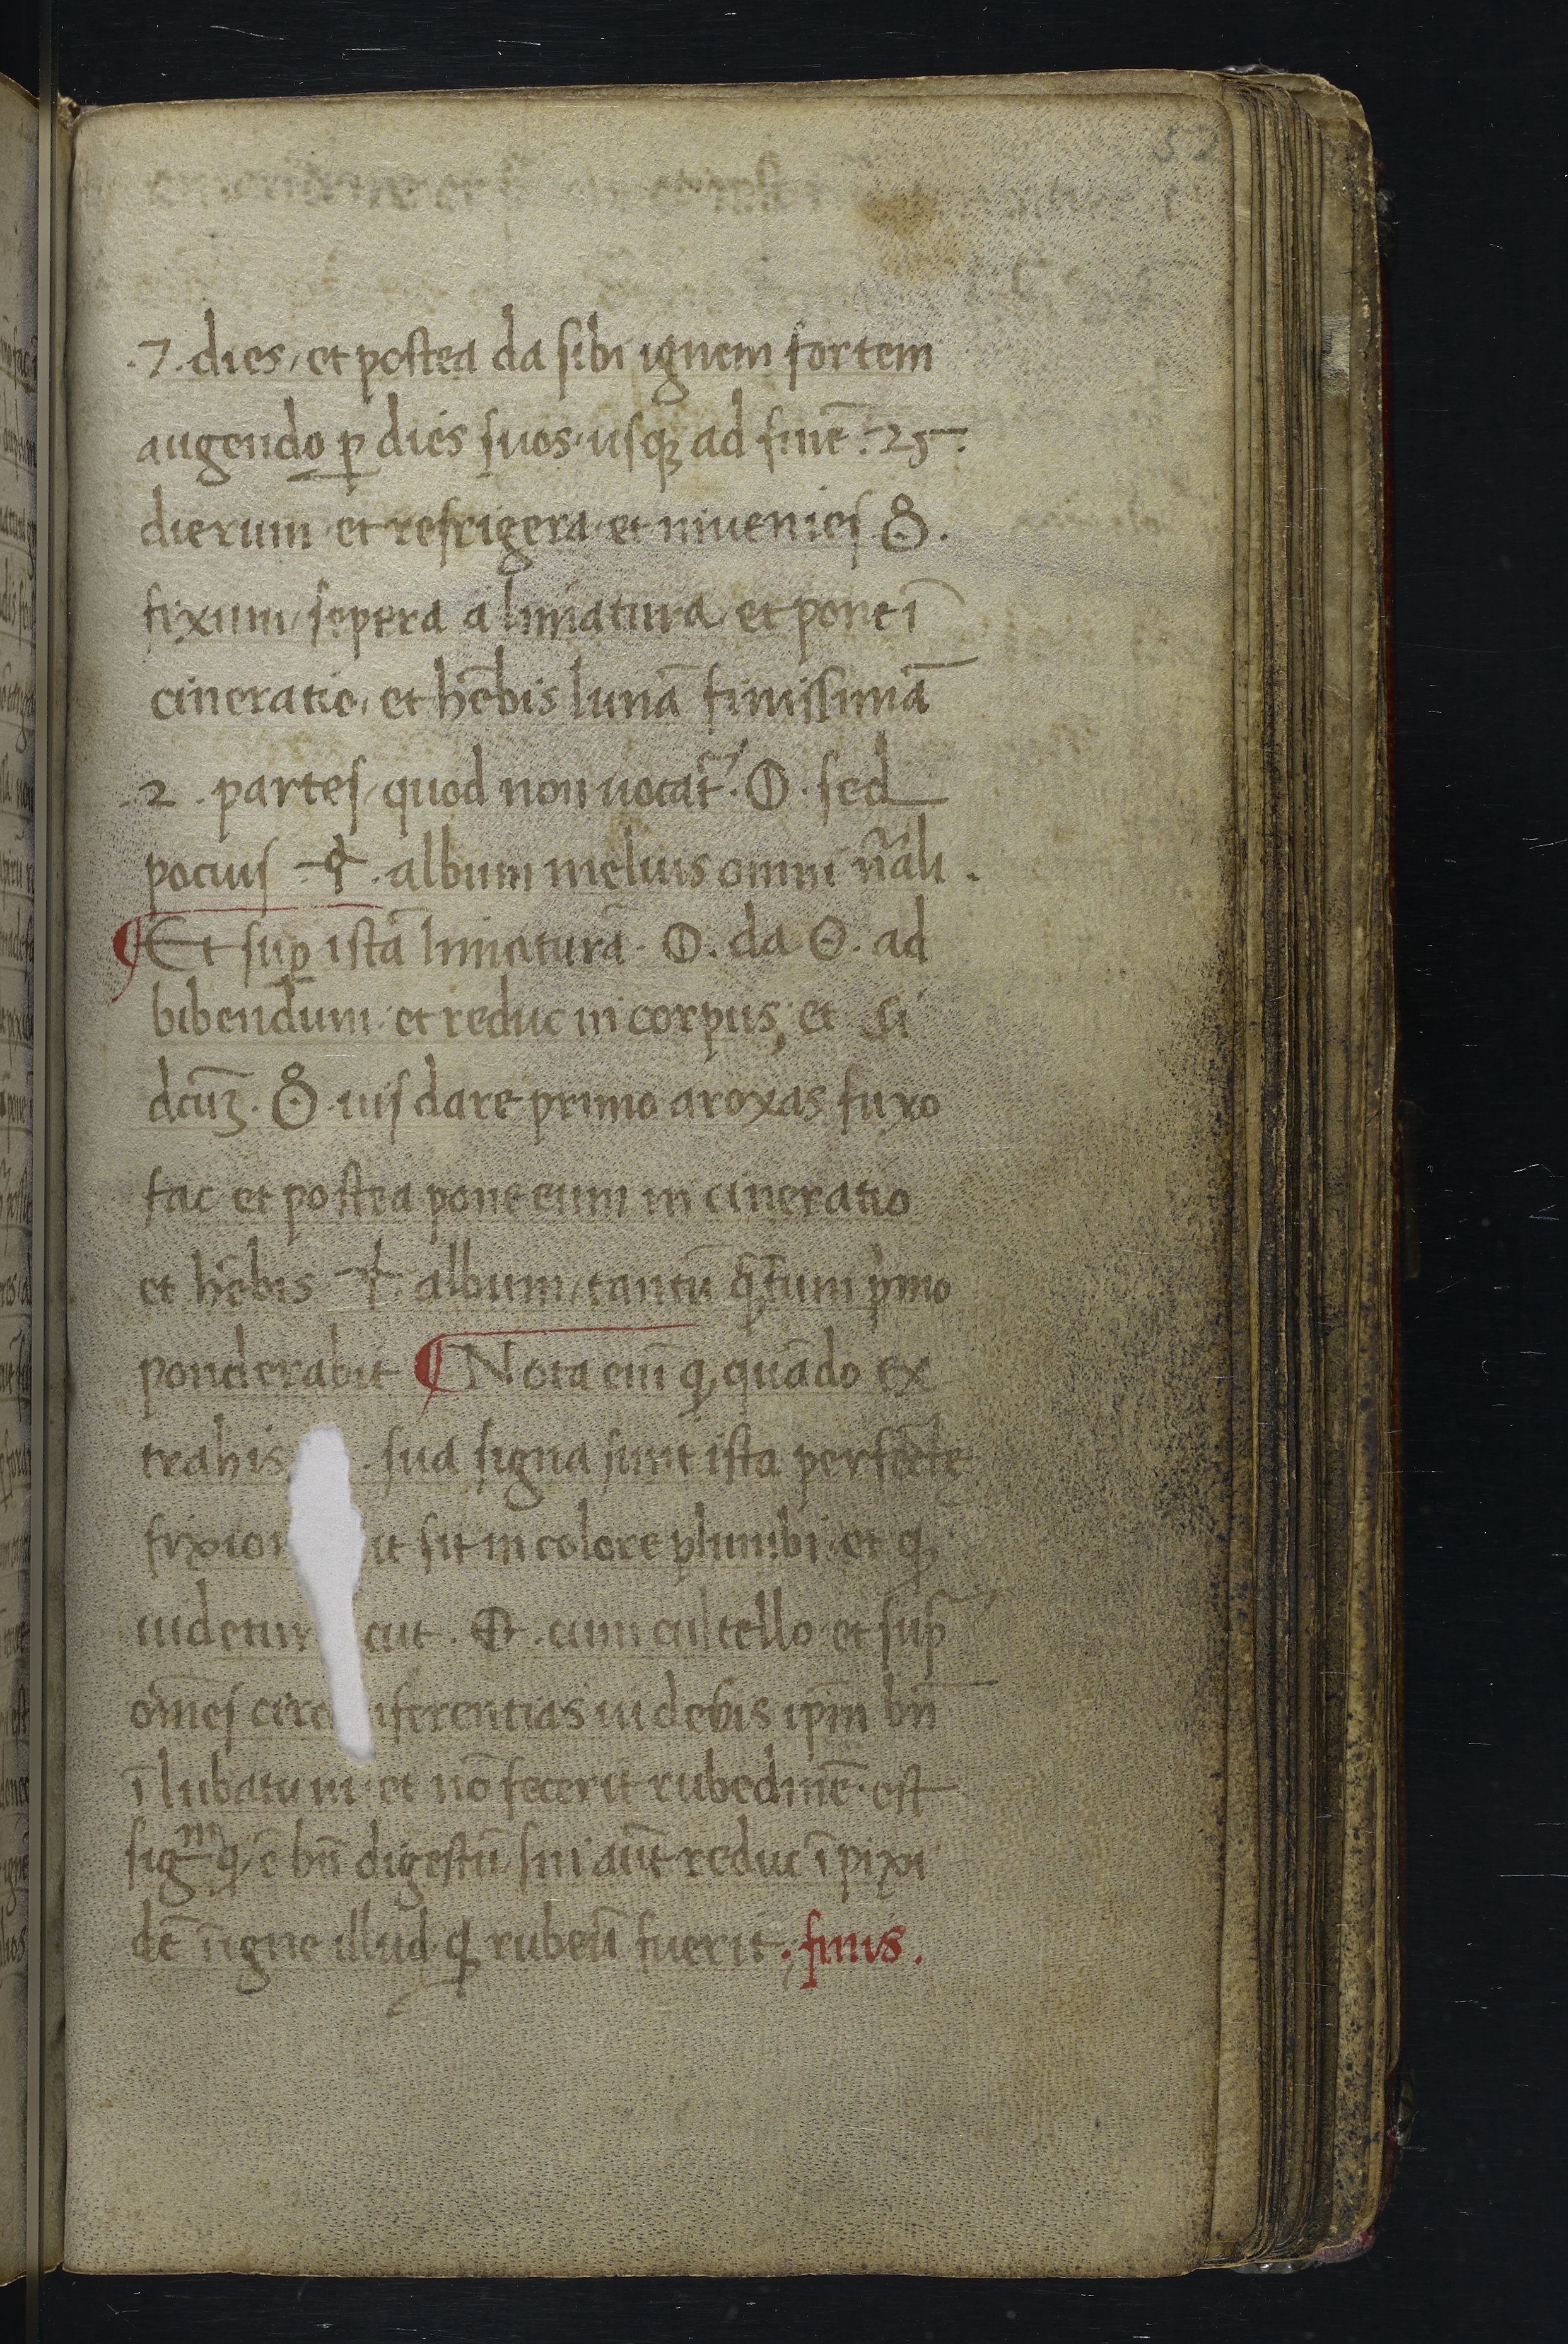 .7. dies, et postea da sibi ignem fortem
augendo ꝑ dies suos, usqꝫ ad finē .25.
dierum et refrigera, et invenies
fixum, sepera a limatura, et pone ī
cineratio, et hēbis lunā finissimā
.2. partes, quod non vocat̄. sed
pocius album melius omni nr̄ali.
¶ Et suꝑ istā limaturā. da ad
bibendum et reduc in corpus, et si
dcūꝫ. vis dare primo aroxas furo
fac et postea pone eum in cineratio
et hēbis album, tantū qͣtum pͥmo
ponderabit ¶ Nota eni̅ ꝙ quādo ex
trahis . sua signa sunt ista perfecte
frixion ut sit in colore plumbi, et ꝙ
cut. cum cultello et suꝑ
om̄es circ ferentias videbis ip̄m bn̄
ī lubatum et nō fecerit rubedinē. est
sigᵐ ꝙ ē bn̄ digestū, sin aūt reduc ī pixi
dē ī igne illud ꝙ rubeū fuerit. finis.